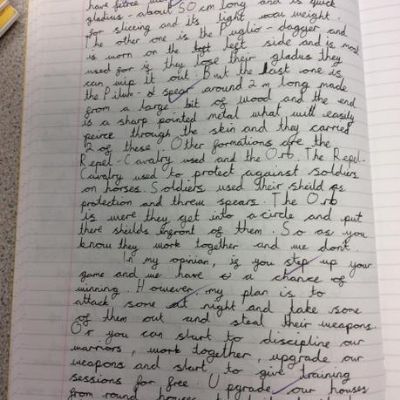 have three
gladius - about 50 cm long and is quick
for slicing and its light weight.
The other one is the Puglio - dagger and
is worn on the left side and is most
used for is they lose their gladus they
can wip it out. But the last one is
the Pilum - a spear around 2 m long made
from a large bit of wood and the end
is a sharp pointed metal what will easily
peirce through the skin and they carried
2 of these. Other formations are the
Repel-Cavalry used and the Orb. The Repel-
Cavalry used to protect against soldiers
on horses. Soldiers used their sheild as
protection and threw spears. The Orb
is were they get into a circle and put
there shields infront of them. So as you
know they work together and we dont.
In my opinion, is you step up your
game and we have a chance of
winning. However, my plan is to
attack some at night and take some
of them out and steal their weapons.
Or you can start to discipline our
warriors, work together, upgrade our
weapons and start to give training
sessions for free. Upgrade our houses
from round houses